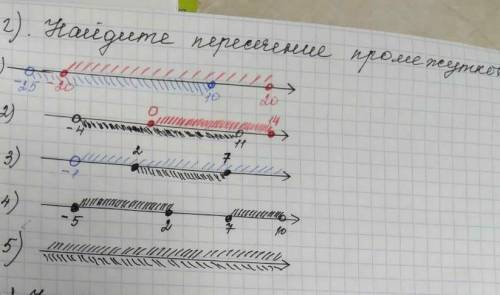 2). Найдите пересечение промежутков
)
-25 -20 10 20
2)
-4 0 11 14
3)
-1 2 7
4)
-5 2 7 10
5)